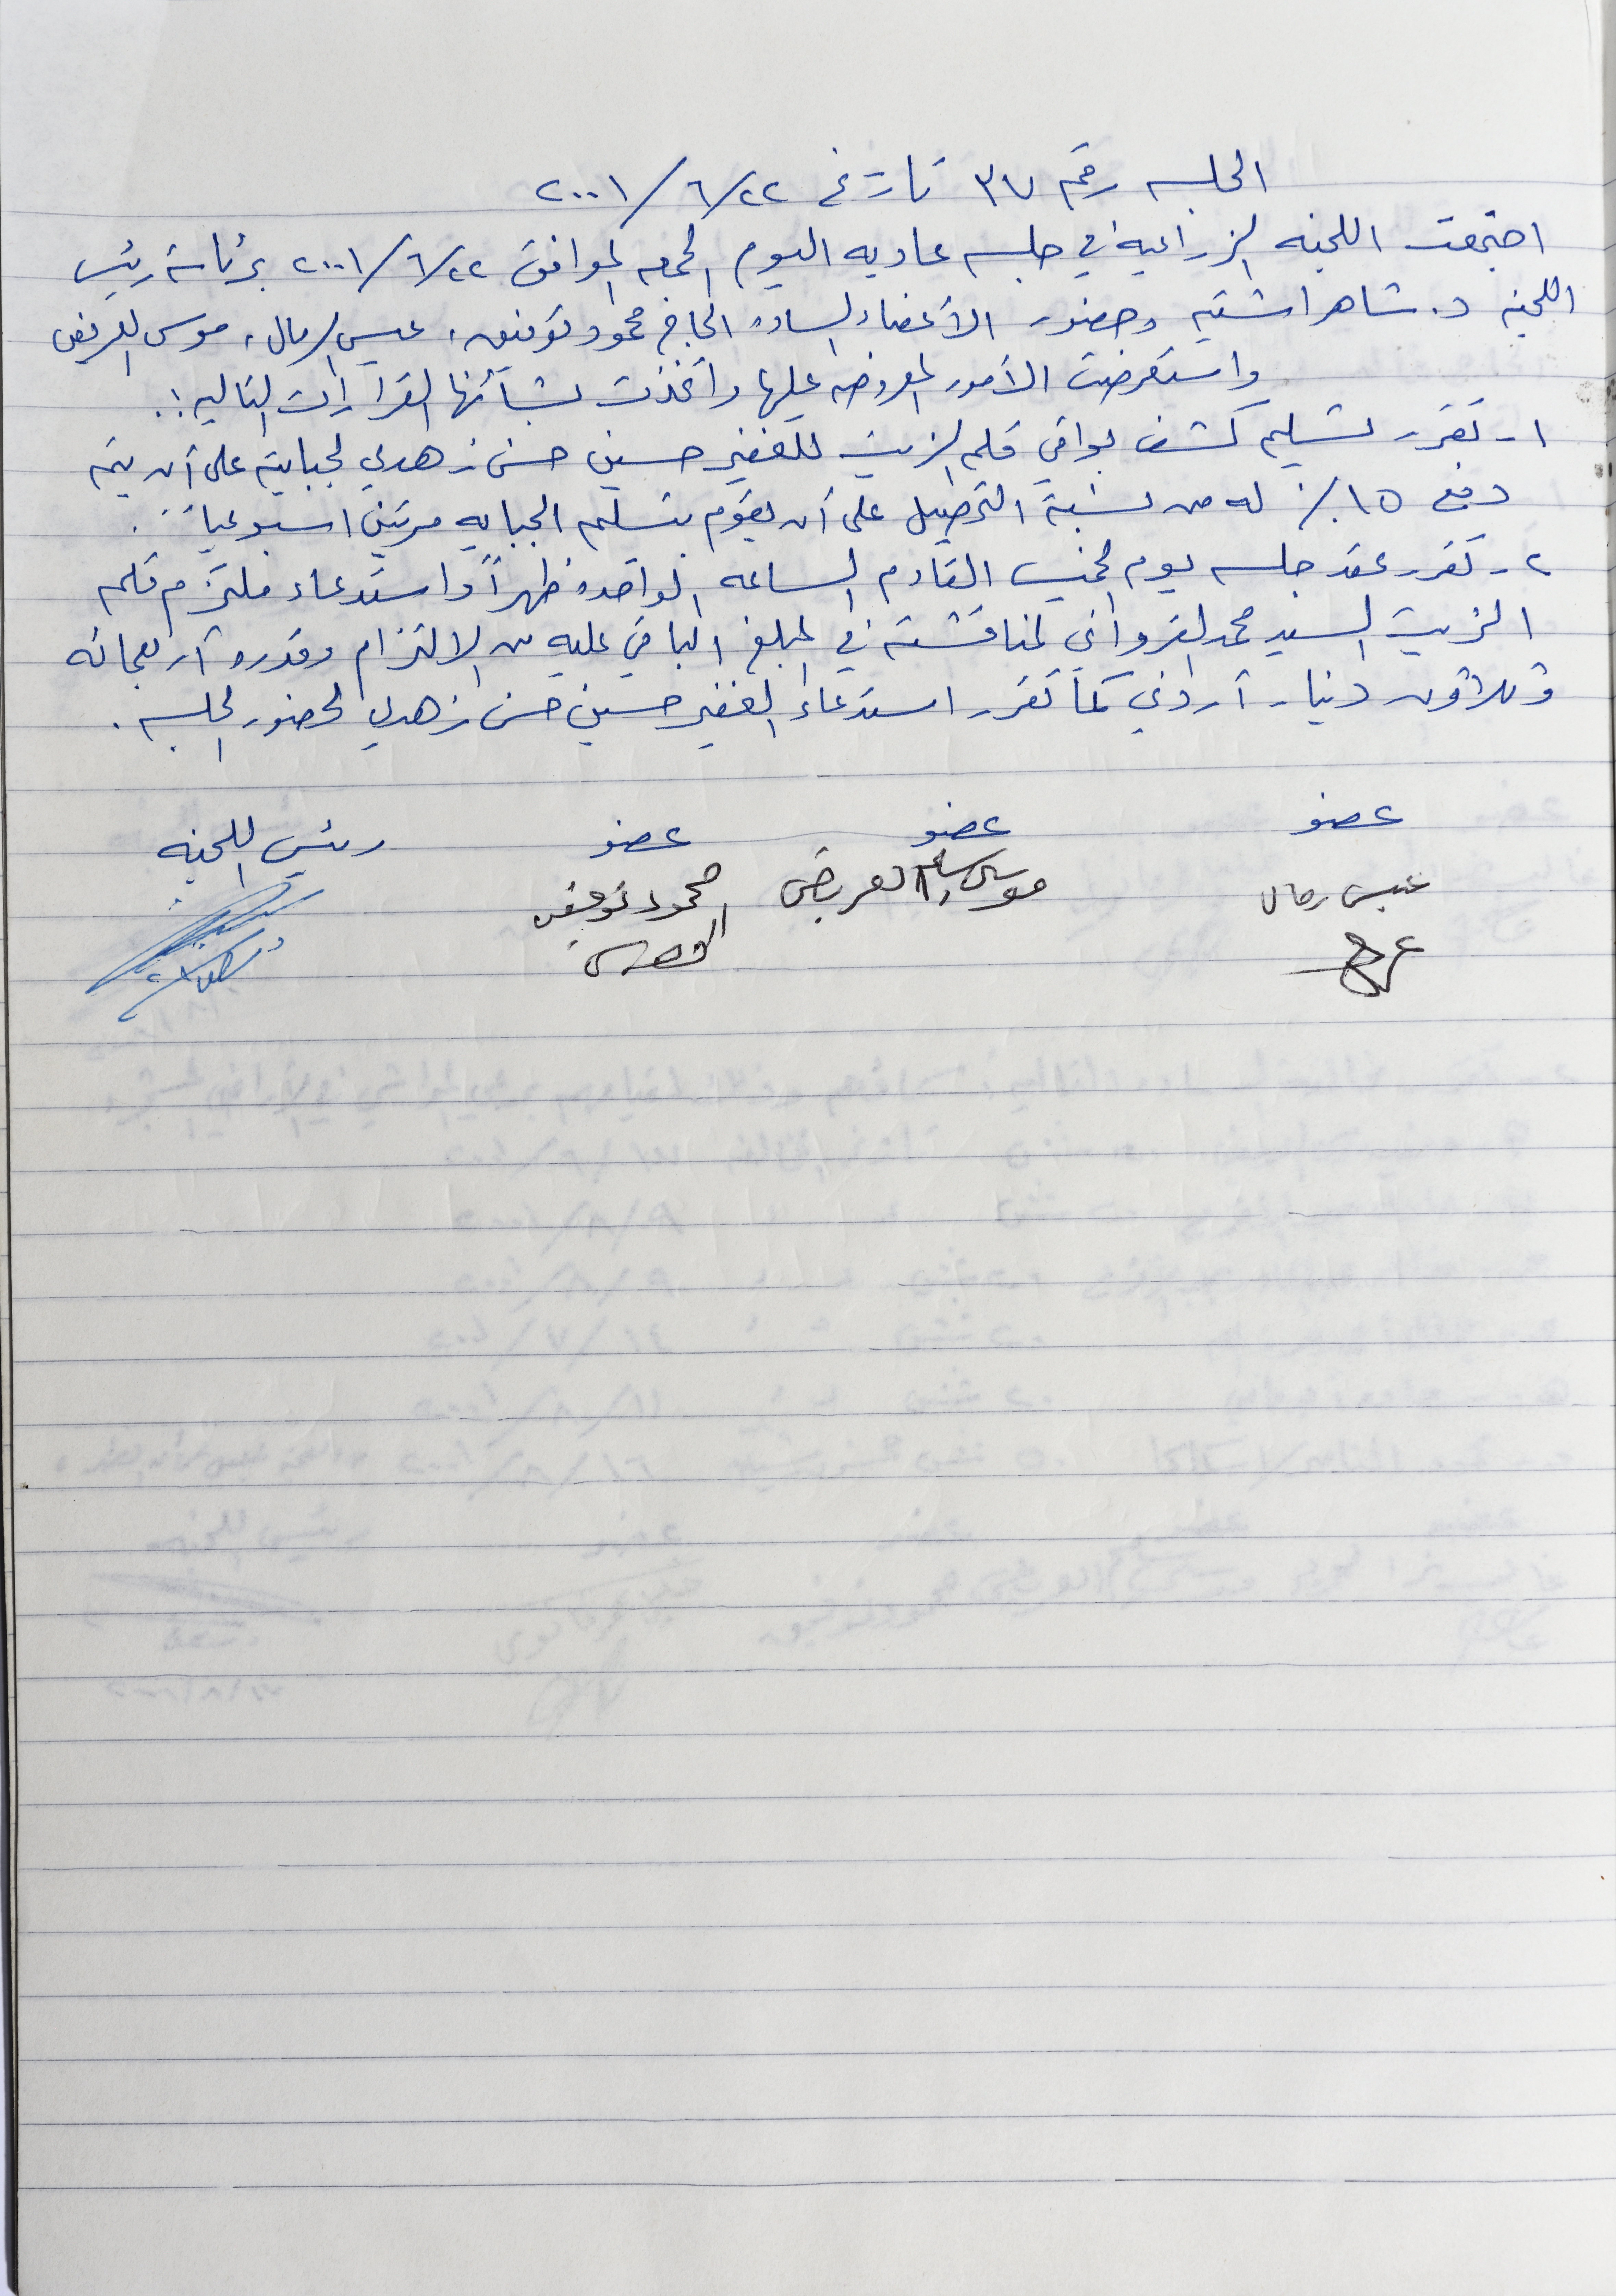 الجلسه رقم ٣٧ تاريخ ٢٢/٦/٢٠٠١
اجتمعت اللجنه الزراعية في جلسه عاديه اليوم الجمعه الموافق ٢٢/٦/٢٠٠١ برئاسة رئيس
اللجنه د. شاهر اشتيه وحضور الأعضاء الساده الحاج محمود توفيق، عيسى رمال، موسى العريض
واستعرضت الأمور المعروضه عليها واتخذت بشأنها القرارات التاليه:.
١- تقرر تسليم كشف بواقي قلم الزيت للغفير حسين حسن زهدي لجبايته على أن يتم
دفع ١٥٪ له من نسبة التحصيل على أن يقوم بتسليم الجبايه مرتين اسبوعياً.
٢- تقرر عقد جلسه يوم الخميس القادم الساعه الواحده ظهراً واستدعاء ملتزم قلم
الزيت السيد محمد القرواني لمناقشته في المبلغ الباقي عليه من الالتزام وقدره أربعمائه
وثلاثون دينار أردني كما تقرر استدعاء الغفير حسين حسن زهدي لحضور الجلسه.
عضو عضو عضو رئيس اللجنه
عيسى رمال موسى العريض محمود توفيق